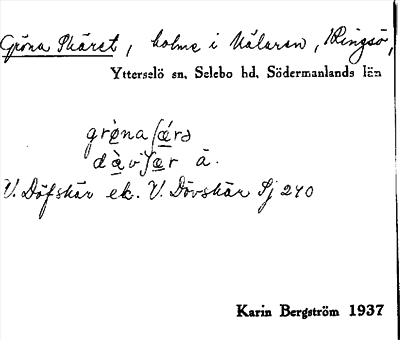 Gröna Skäret, holme i Mälaren, Ringsö,
Ytterselö sn, Selebo hd, Södermanlands län
V. Döfskär ek. V. Dövskär Sj 240
Karin Bergström 1937